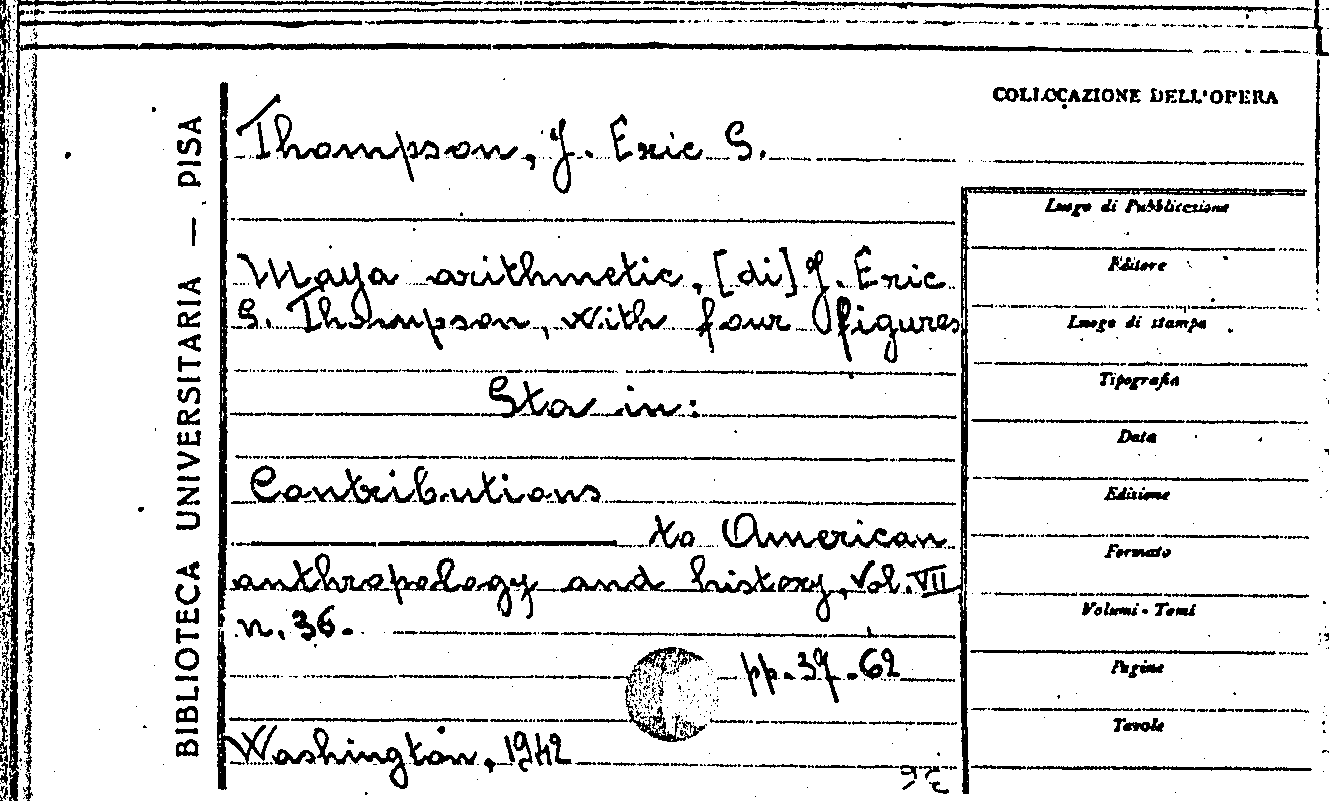 COLLOCAZIONE DELL'OPERA
BIBLIOTECA UNIVERSITARIA — PISA
Thompson, J. Eric S.
Maya arithmetic, [di] J. Eric
S. Thompson, with four figures
Sta in:
Contributions
to American
anthropology and history, Vol. VII
n. 36.
pp. 37-62
Washington, 1942
Luogo di Pubblicazione
Editore
Luogo di stampa
Tipografia
Data
Edizione
Formato
Volumi - Tomi
Pagine
Tavole